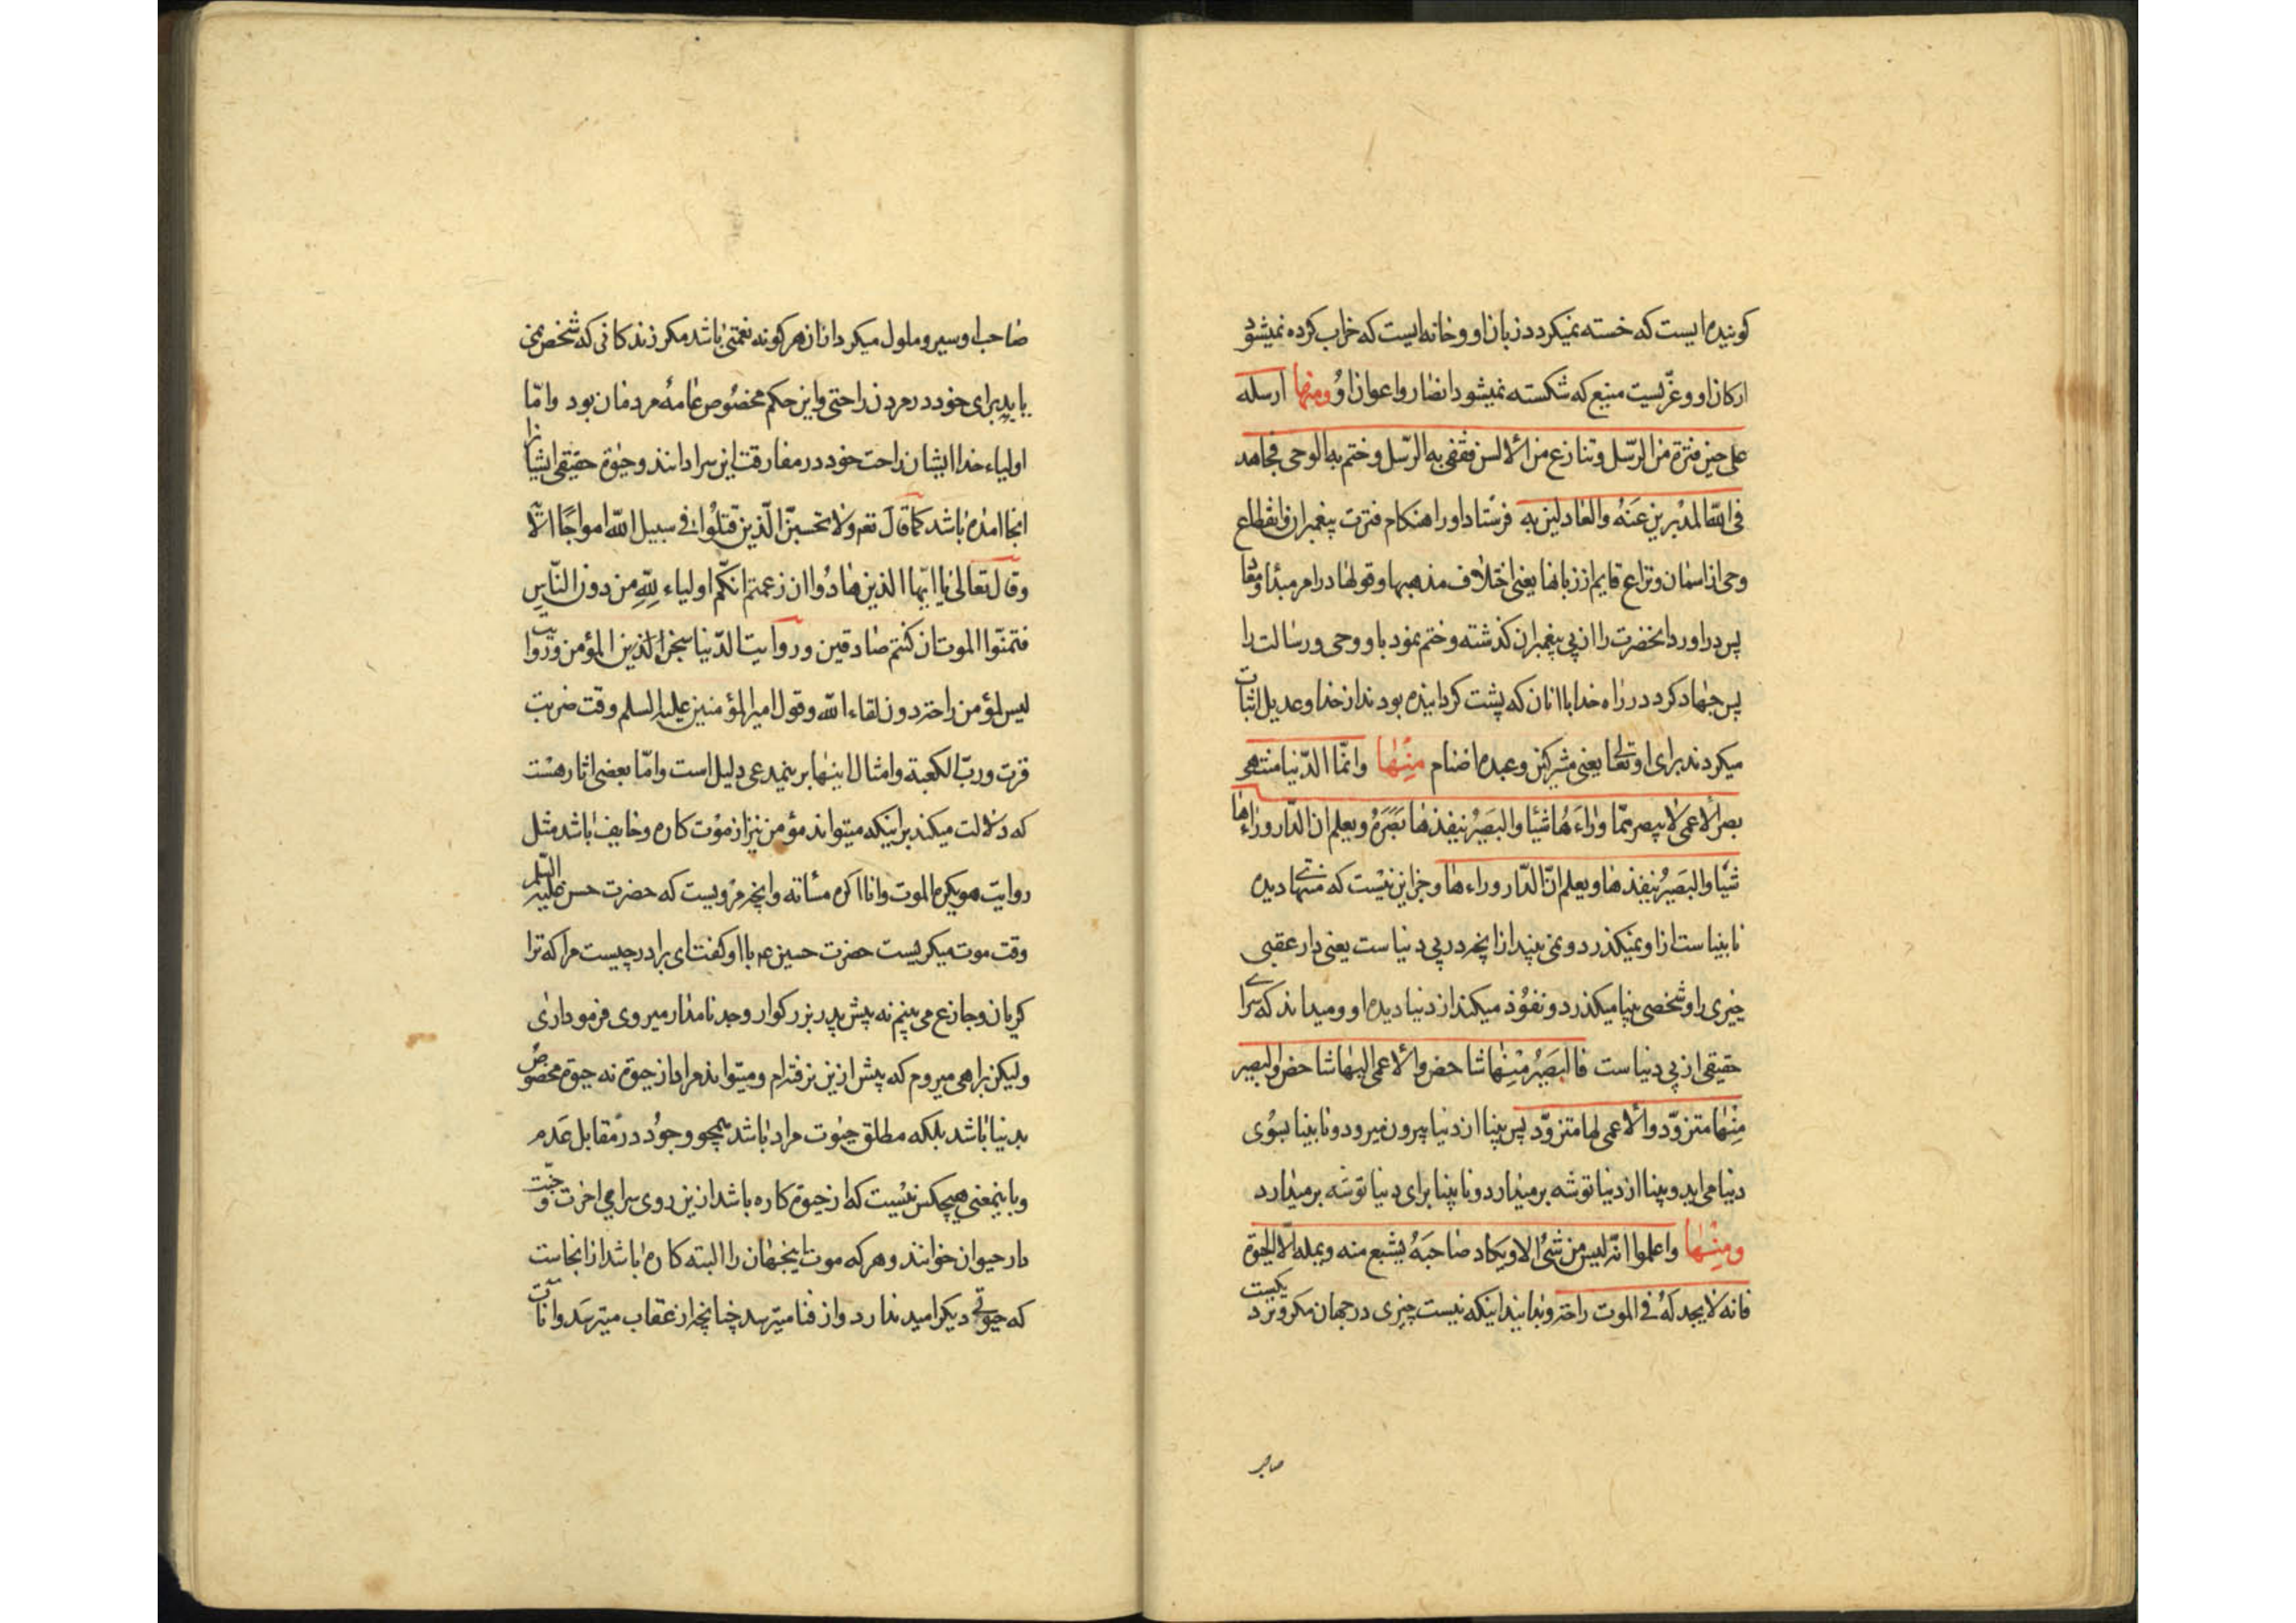 کوینده‌ایست که خسته نمیکردد زبان او و خانه‌ایست که خراب کرده نمیشود
ارکان او و عزّیست منیع که شکسته نمیشود انصار و اعوان او ومنها ارسله
علی حین فترة من الرّسل و تنازع من الألسن فقفی به الرّسل و ختم به الوحی فجاهد
فی اللّه المدبرین عنه والعادلین به فرستاد او را هنکام فترت پیغمبران و انقطاع
وحی از اسمان و نزاع قایم از زبانها یعنی اختلاف مذهبها و قولها در امر مبدأ و معاد
پس در اورد انحضرت را از پی پیغمبران کذشته و ختم نمود باو وحی و رسالت را
پس جهاد کرد در راه خدا با انان که پشت کردانیده بودند از خدا و عدیل اثبات
میکردند برای او تعالی یعنی مشرکین و عبده اصنام منها وانّما الدّنیا منتهی
بصر الأعمی لا یبصر ممّا وراءها شیئا والبصیر ینفذها بصره ویعلم ان الدّار وراءها
شیئا والبصیر ینفذها ویعلم انّ الدّار وراءها و جز این نیست که دنیا منتهای دیده
نابینا است از او نمیکذرد و نمی بیند از انچه در پی دنیا است یعنی دار عقبی
چیزی را و شخصی بینا میکذرد و نفوذ میکند از دنیا دیده او و میداند که سرای
حقیقی از پی دنیا است فالبصیر منها شاخص والأعمی الیها شاخص والبصیر
منها متزوّد والأعمی لها متزوّد پس بینا از دنیا بیرون میرود و نابینا بسوی
دنیا می‌اید و بینا از دنیا توشه برمیدارد و نابینا برای دنیا توشه برمیدارد
ومنها واعلموا انّه لیس من شئ الا ویکاد صاحبه یشبع منه ویمله الّا الحیوة
فانه لا یجد له فی الموت راحة و بدانید اینکه نیست چیزی در جهان مکر و نزدیکست
صاحب
صاحب او سیر و ملول میکردد از ان هر کونه نعمتی باشد مکر زندکانی که شخص نمی
یابد برای خود در مردن راحتی و این حکم مخصوص عامه مردمان بود و امّا
اولیاء خدا ایشان راحت خود در مفارقت این سرا دانند و حیوة حقیقی ایشان را
انجا امده باشد کما قال تعه ولا تحسبنّ الّذین قتلوا فی سبیل اللّه امواتا الآیة
وقال تعالی یا ایّها الذین هادوا ان زعمتم انکّم اولیاء للّه من دون النّاس
فتمنّوا الموت ان کنتم صادقین و روایت الدّنیا سجن المؤمن و روایت
لیس لمؤمن راحة دون لقاء اللّه و قول امیر المؤمنین علیه السلم وقت ضربت
فزت وربّ الکعبة و امثال اینها بر ینمدعی دلیل است و امّا بعضی اثار هست
که دلالت میکند بر اینکه میتواند مؤمن نیز از موت کاره و خایف باشد مثل
روایت هو یکره الموت وانا اکره مسأته و انچه مرویست که حضرت حسن علیه السّلم
وقت موت میکریست حضرت حسین عم با او کفت ای برادر چیست مرا که ترا
کریان و جازع می بینم نه پیش پدر بزرکوار و جد نامدار میروی فرمود اری
ولیکن براهی میروم که پیش ازین نرفته‌ام و میتواند مراد از حیوة نه حیوة مخصوص
بدنیا باشد بلکه مطلق حیوت مراد باشد همچو وجود در مقابل عدم
و باینمعنی هیچکس نیست که از حیوة کاره باشد ازین روی سرای اخرت و جنّت
دار حیوان خوانند و هر که موت اینجهان را البته کاره باشد از انجاست
که حیوتی دیکر امید ندارد و از فنا میترسد چنانچه از عقاب میترسد و اناث